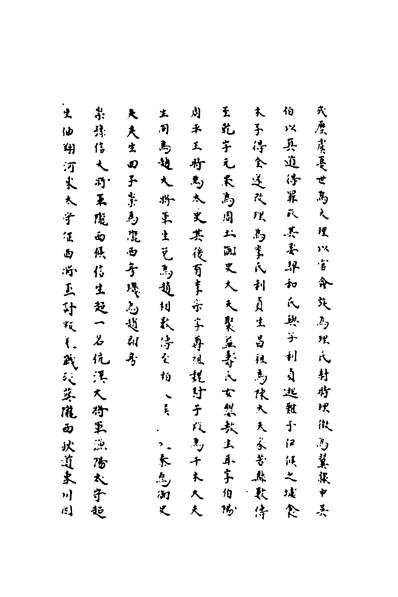 氏歷虞夏世為大理以官命族為理氏紂時理徵為翼隸中吳
伯以直道得罪死其妻契和氏與子利貞逃難于伊侯之墟食
木子得全遂改理為李氏利貞生昌祖為陳大夫家苦縣歎傳
至乾字元杲為周上御史大夫娶益壽氏女嬰敷生耳字伯陽
周平王時為太史其後有李宗字尊祖魏封于段為干木大夫
生同為趙大將軍生兌為趙相歎傳至伯 秦為御史
大夫生四子崇為隴西守璣為趙
崇孫信大將軍隴西侯信生超一名伉漢大將軍漁陽太守超
生伯翔河東太守征西將軍討叛羌戰歿葬隴西狄道東川因